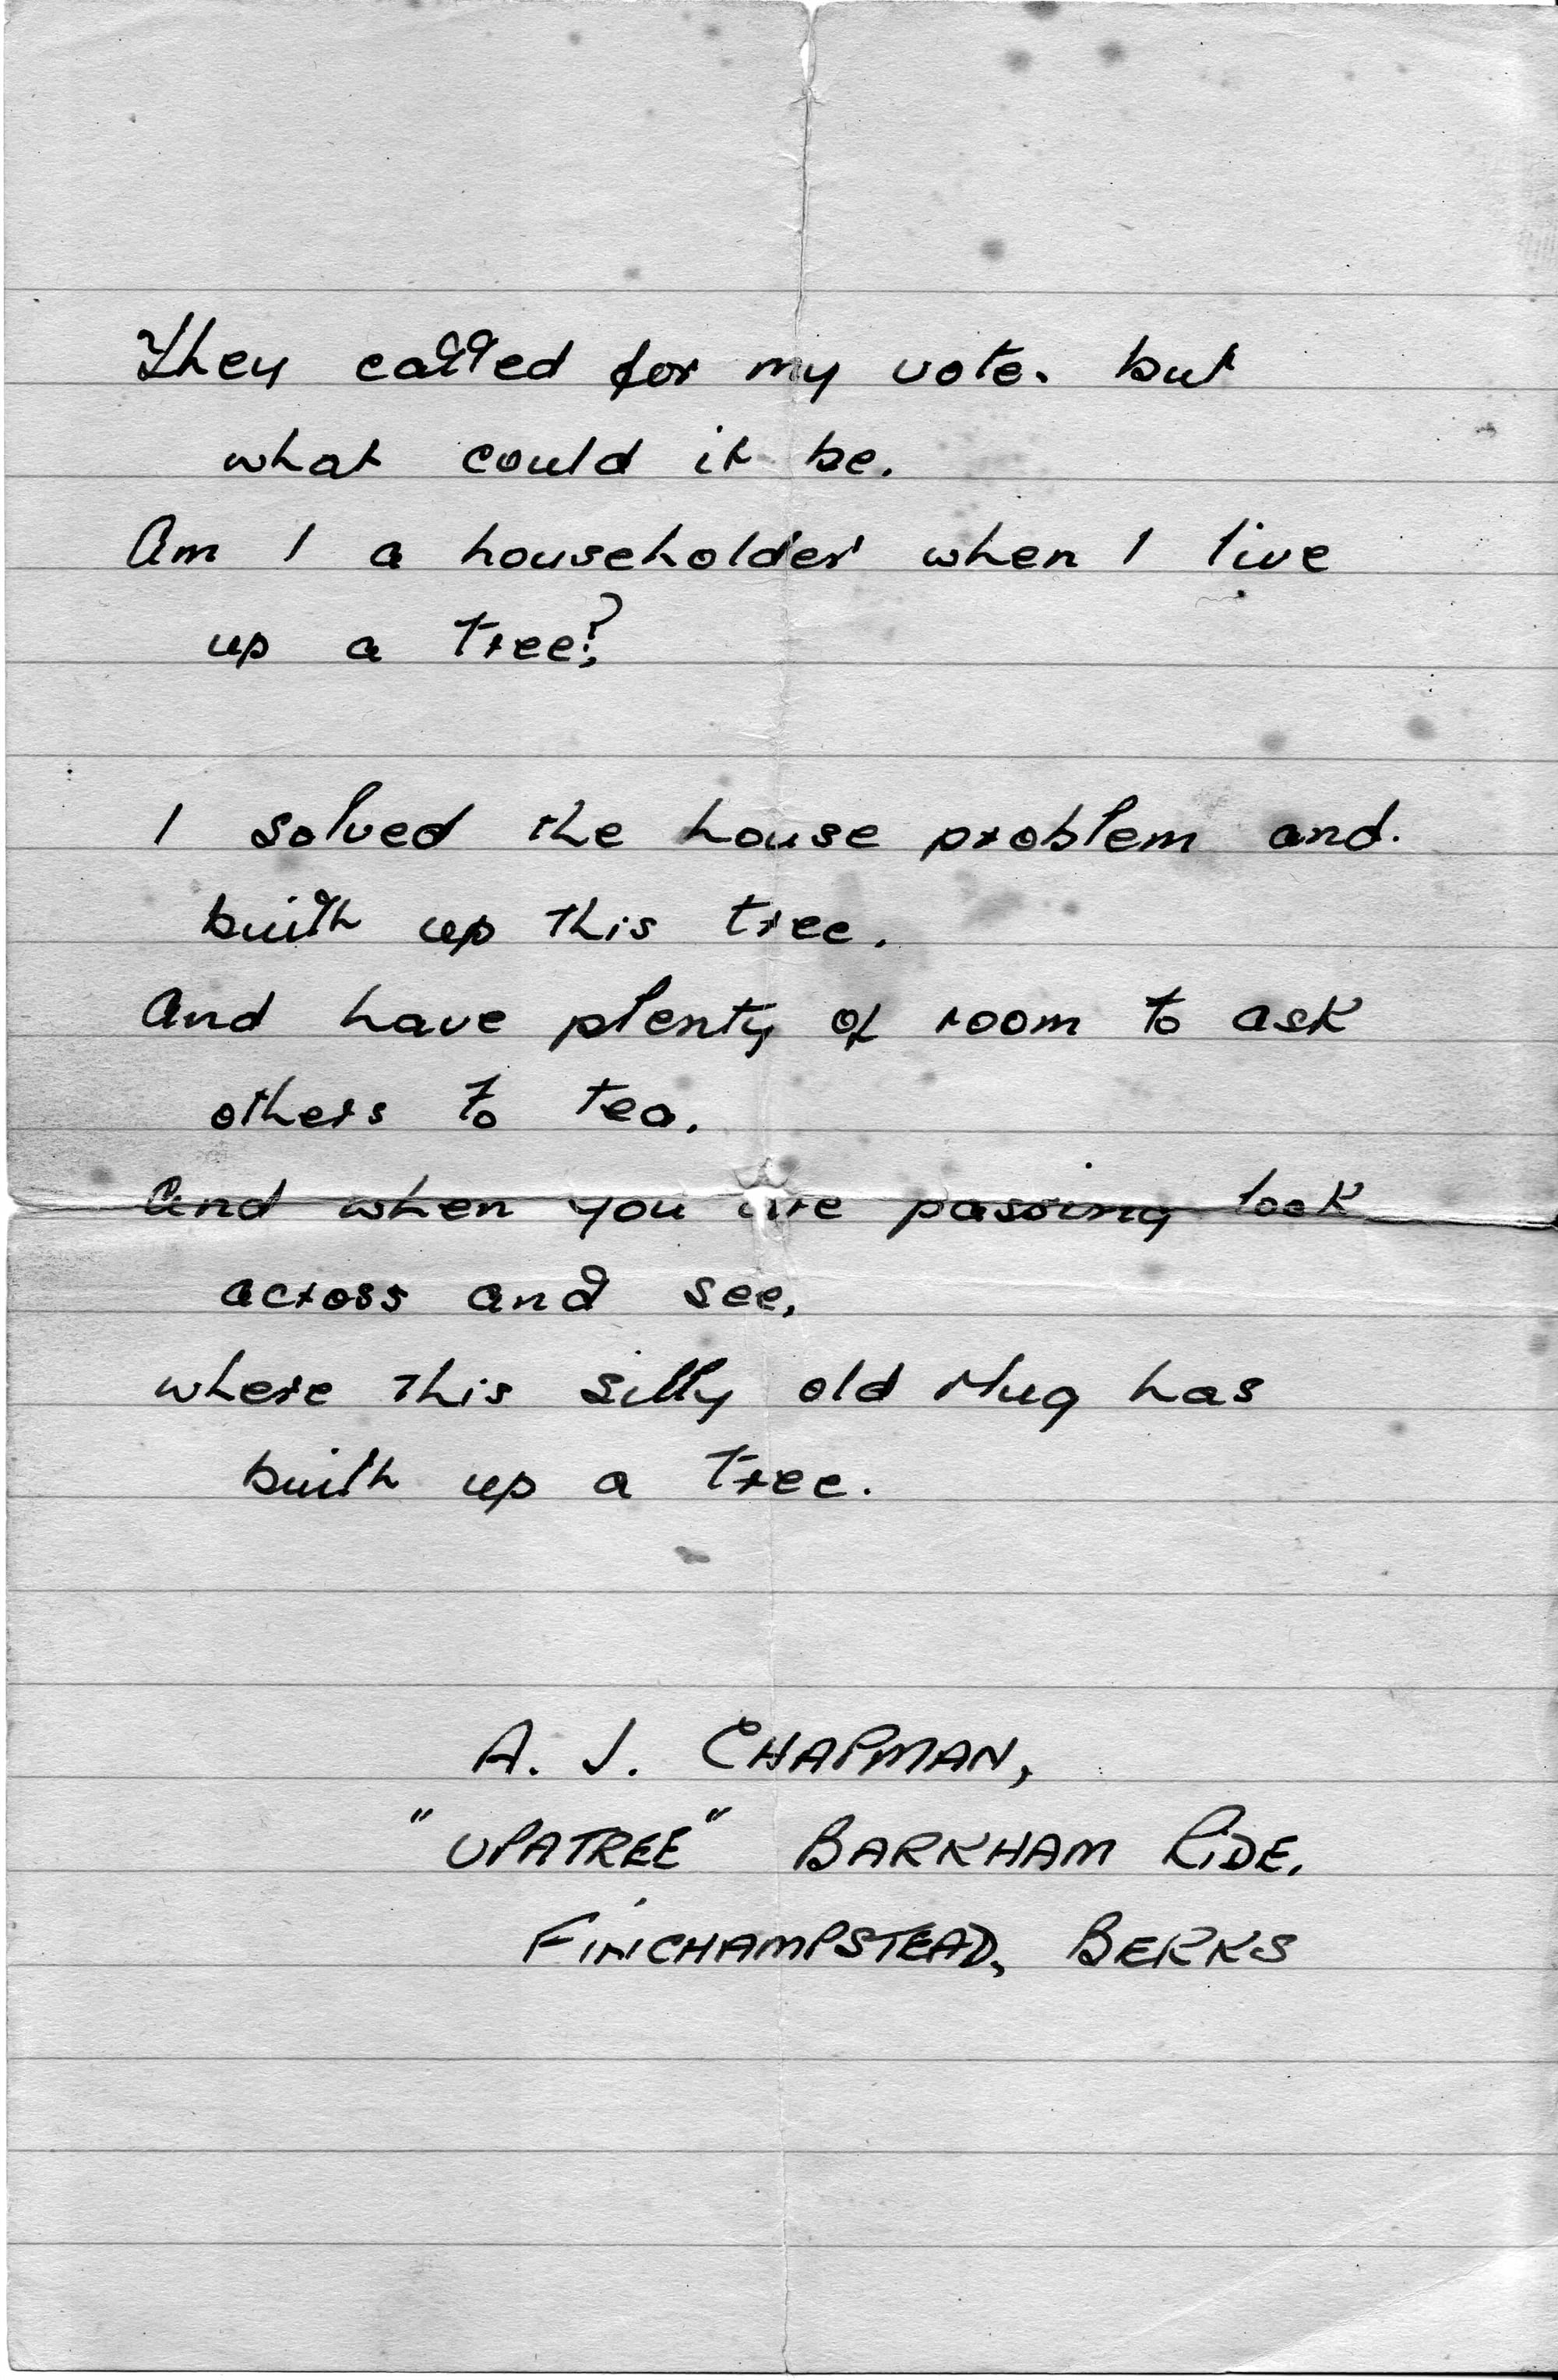 They called for my vote. but
what could it be.
Am I a householder when I live
up a tree?
I solved the house problem and.
built up this tree.
And have plenty of room to ask
others to tea.
And when you are passing look
across and see,
where this silly old Mug has
built up a tree.
A. J. CHAPMAN,
"UPATREE" BARKHAM RIDE.
FINCHAMPSTEAD, BERKS